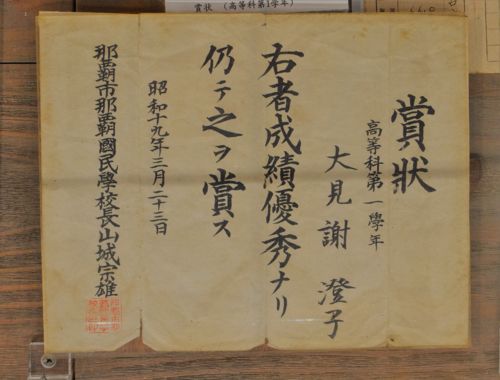 賞状 (高等科第1学年)
賞狀
高等科第一學年
大見謝 澄子
右者成績優秀ナリ
仍テ之ヲ賞ス
昭和十九年三月二十三日
那覇市那覇國民學校長山城宗雄